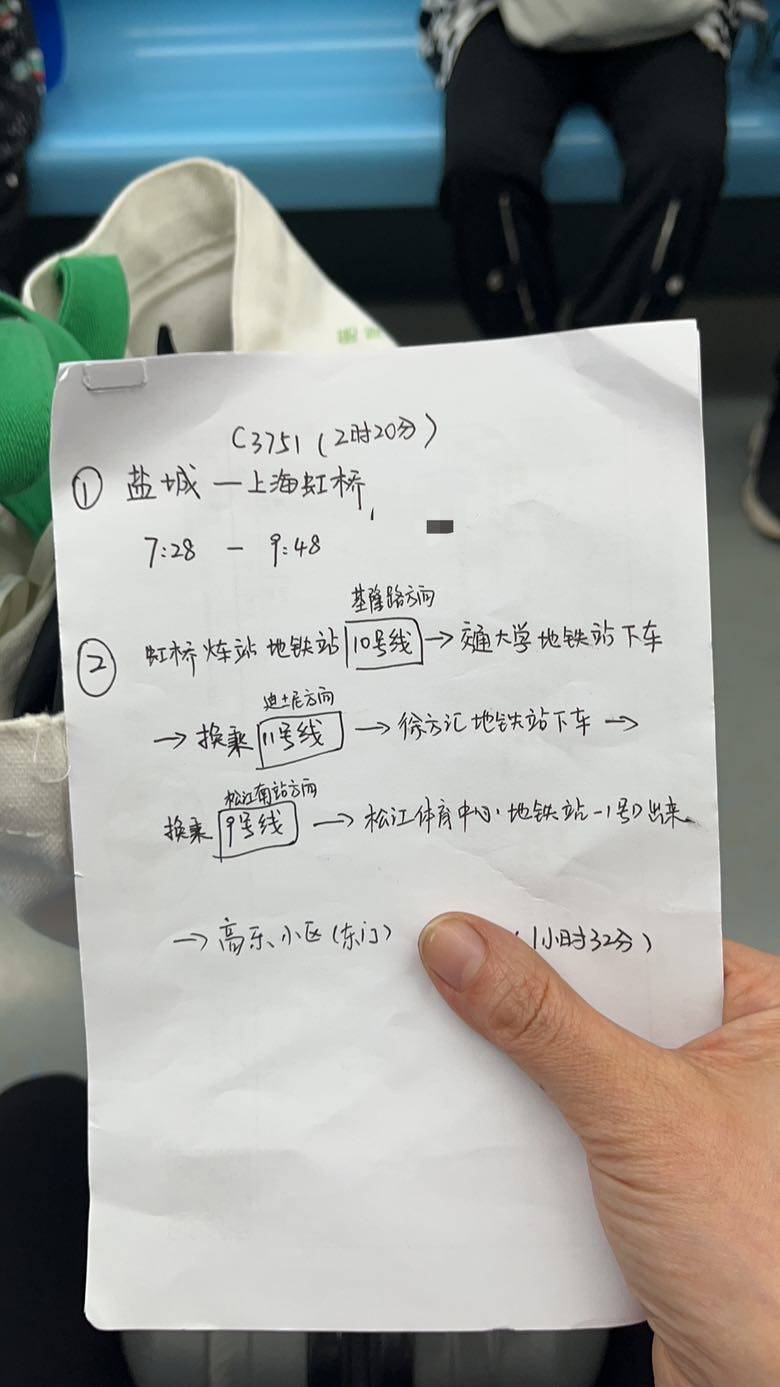 C3751（2时20分）
① 盐城 — 上海虹桥,
7:28 - 9:48
基隆路方向
② 虹桥火车站 地铁站 10号线 → 交通大学 地铁站 下车
迪士尼方向
→ 换乘 11号线 → 徐方汇 地铁站下车 →
松江南站方向
换乘 9号线 → 松江体育中心·地铁站-1号口出来
→ 高乐、小区（东门） （1小时32分）